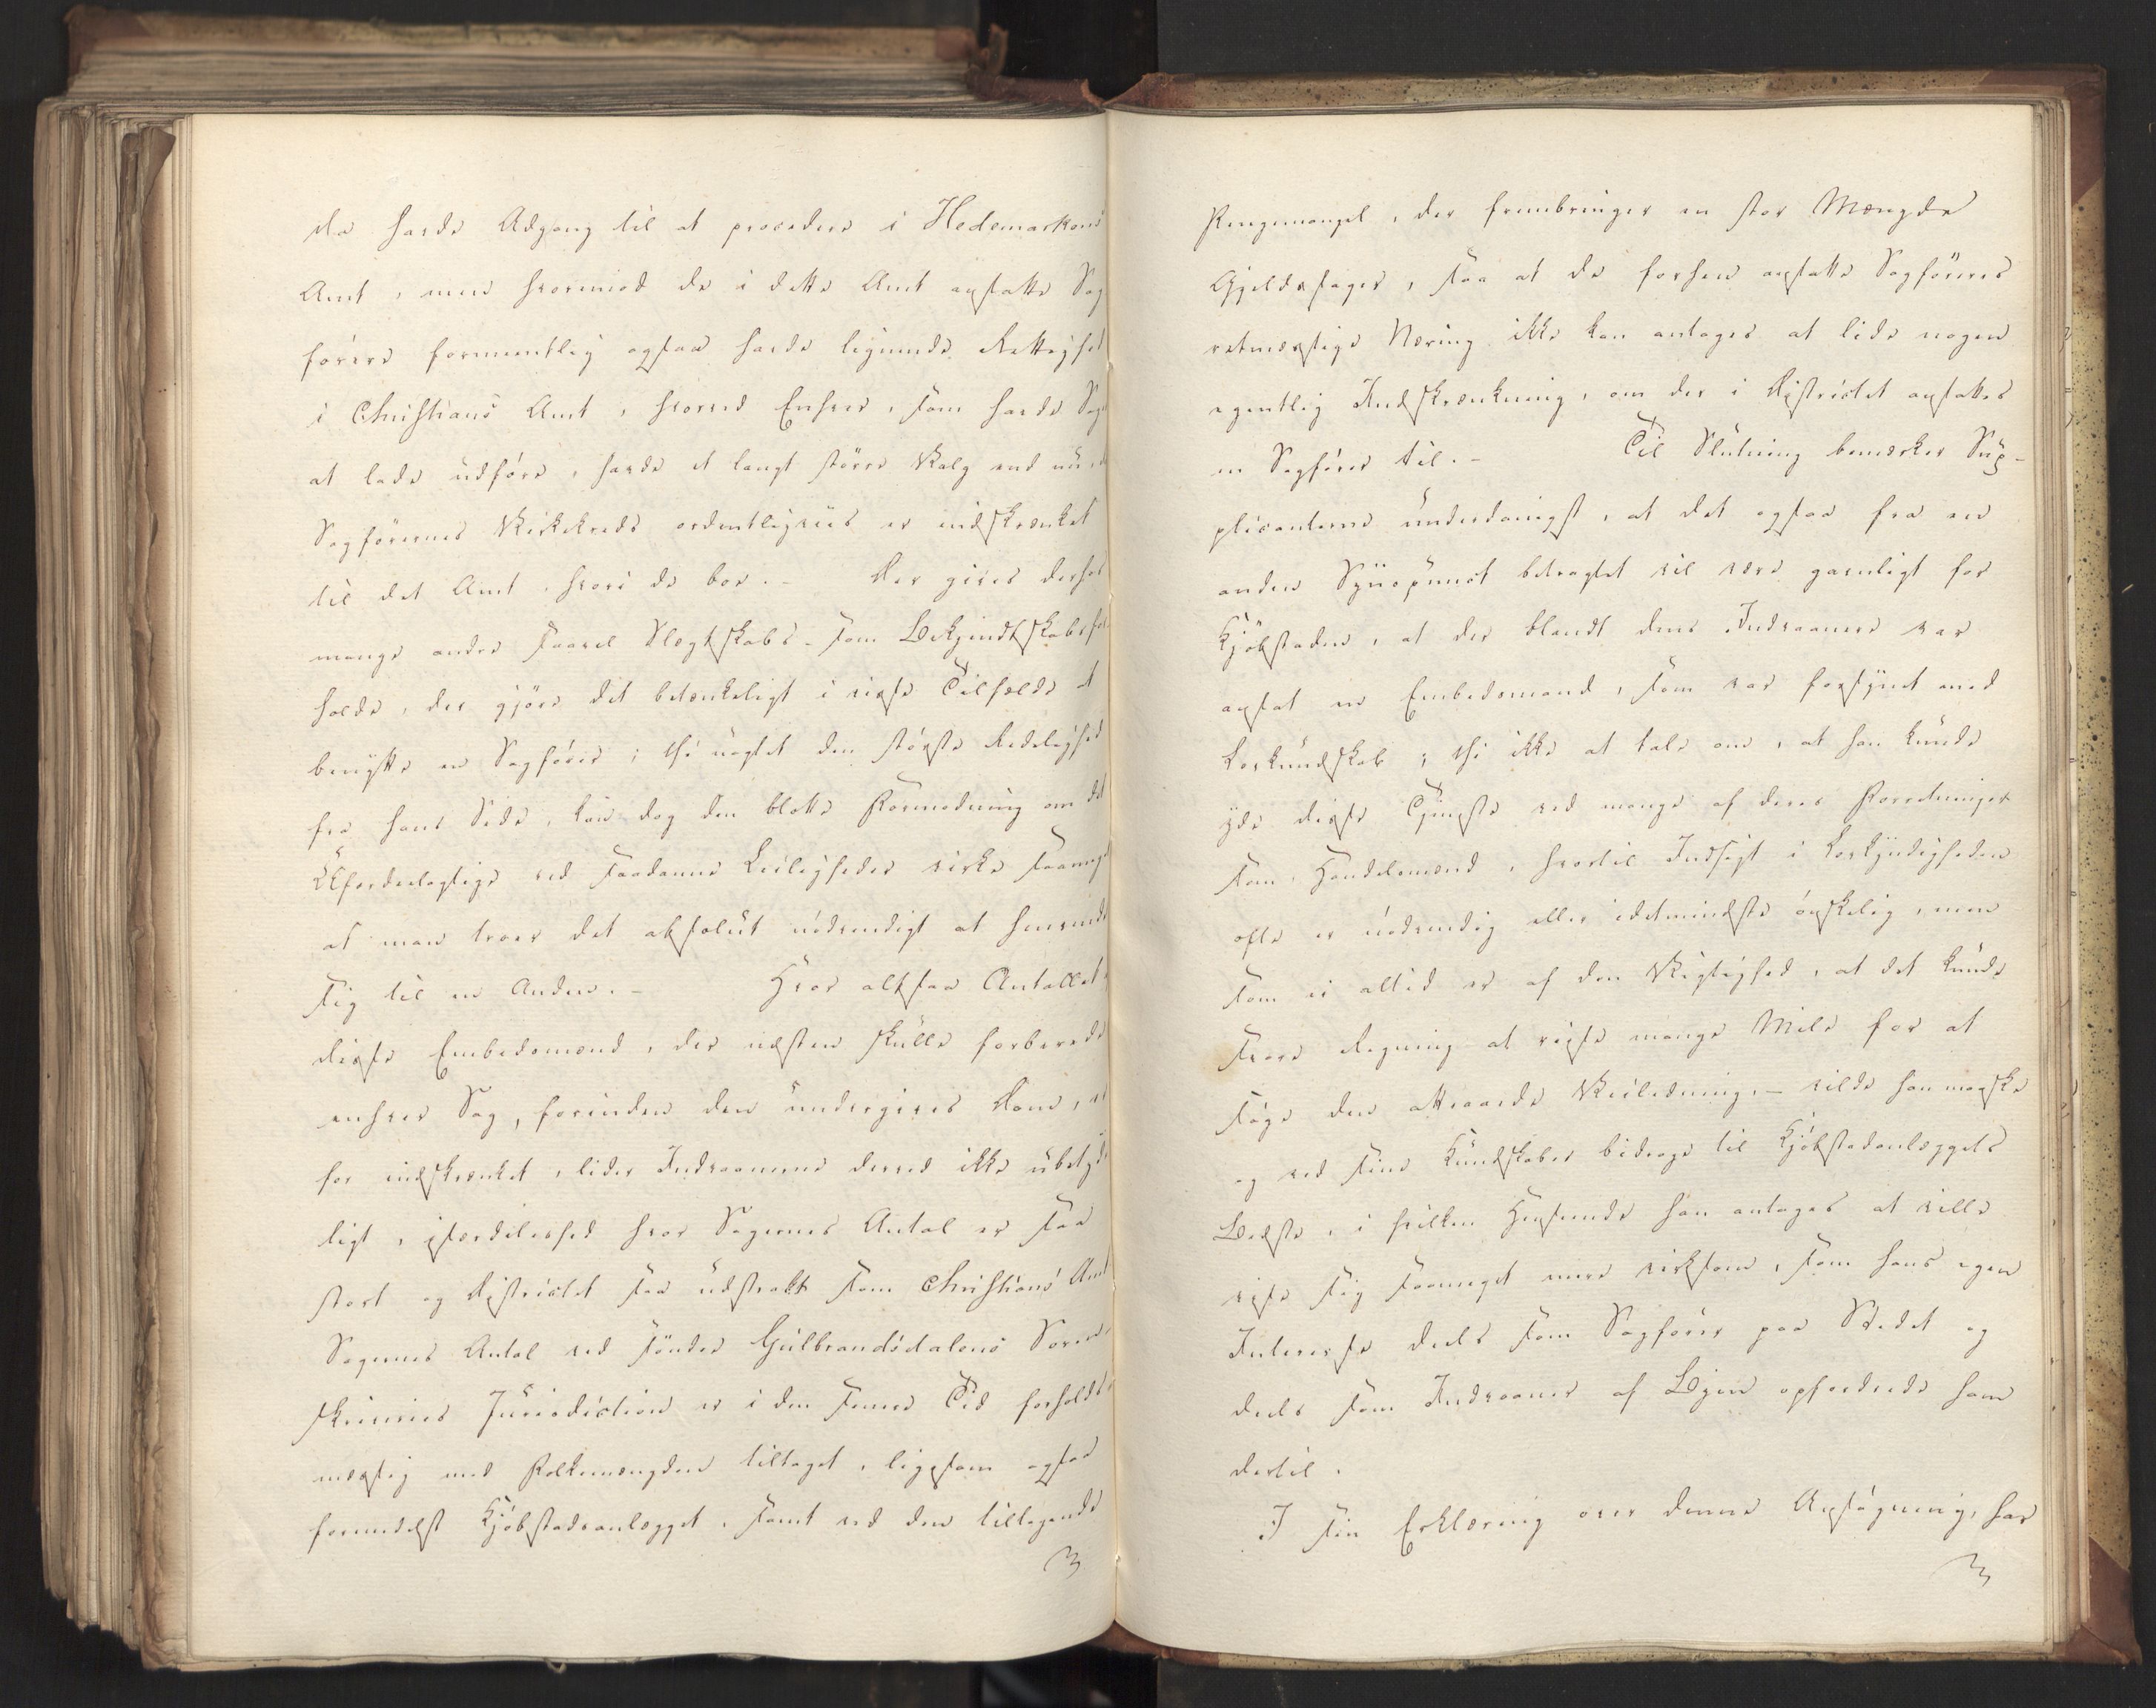 de havde Adgang til at procedere i Hedemarkens
Amt, men hvorimod de i dette Amt ansatte Sag
førere formentlig ogsaa havde lignende Rettighed
i Christians Amt, hvorved Enhver, som havde Sag
at lade udføre, havde et langt større Valg end nu, d
Sagførernes Virkekreds ordentligviis er indskrænket
til det Amt, hvori de boe. - Der gives derhos
mange andre saavel Slægtskabs- som Bekjendtskabsfor
holde, der gjøre det betænkeligt i visse Tilfælde at
benytte en Sagfører; thi uagtet den største Redelighed
fra hans Side, kan dog den blotte Formodning om det
Ufordeelagtige ved saadanne Leiligheder virke saameget
at man troer det absolut nødvendigt at henvende
sig til en Anden. - Hvor altsaa Antallet
disse Embedsmænd, der næsten skulle forberede
enhver Sag, forinden den undergives Dom, er
for indskrænket, lider Indvaanerne derved ikke ubetyde
ligt, isærdeleshed hvor Sagernes Antal er saa
stort og Districtet saa udstrakt som Christians Amt
Sagernes Antal ved søndre Gulbrandsdalens Soren-
skriveries Jurisdiction er i den senere Tid forholds-
mæssig med Folkemængden tiltaget, ligesom ogsaa
formedelst Kjøbstadsanlægget, samt ved den tiltagende
Pengemangel, der frembringer en stor Mængde
Gjeldssager, saa at de forhen ansatte Sagføreres
retmæssige Næring ikke kan antages at lide nogen
egentlig Indskrænkning, om der i Districtet ansattes
en Sagfører til. - Til Slutning bemærker Sup-
plicanterne underdanigst, at det ogsaa fra en
anden Synspunct betragtet vil være gavnligt for
Kjøbstaden, at der blandt dens Indvaanere var
ansat en Embedsmand, som var forsynet med
Lovkundskab; thi ikke at tale om, at han kunde
yde disse Tjeneste ved mange af deres Forretninger
som Handelsmænd, hvortil Indsigt i Lovkyndigheden
ofte er nødvendig eller idetmindste ønskelig, men
som ei altid er af den Vigtighed, at det kunde
svare Regning at reise mange Mile for at
søge den attraaede Veiledning, - vilde han maaske
og ved sine Kundskaber bidrage til Kjøbstadanlæggets
Bedste, i hvilken Henseende han antages at ville
vise sig saameget mere virksom, som hans egen
Interesse deels som Sagfører paa Stedet og
deels som Indvaaner af Byen opfordrede ham
dertil.
I sin Erklæring over denne Ansøgning, har